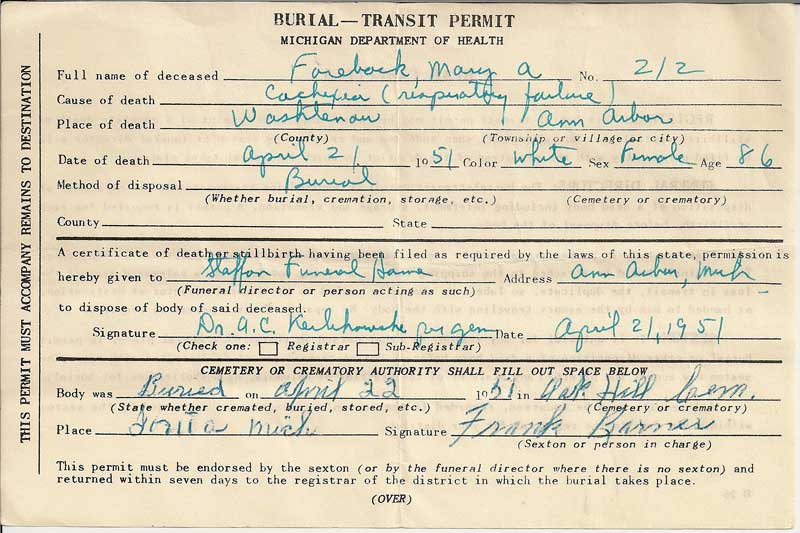 BURIAL—TRANSIT PERMIT
MICHIGAN DEPARTMENT OF HEALTH
Full name of deceased Foreback, Mary A No. 212
Cause of death Cachexia (respiratory failure)
Place of death Washtenaw Ann Arbor
(County) (Township or village or city)
Date of death April 21, 1951 Color White Sex Female Age 86
Method of disposal Burial
(Whether burial, cremation, storage, etc.) (Cemetery or crematory)
County State
A certificate of death or stillbirth having been filed as required by the laws of this state, permission is
hereby given to Staffan Funeral Home Address Ann Arbor, Mich
(Funeral director or person acting as such)
to dispose of body of said deceased.
Signature Dr. A.C. Date April 21, 1951
(Check one: Registrar Sub-Registrar)
CEMETERY OR CREMATORY AUTHORITY SHALL FILL OUT SPACE BELOW
Body was Buried on April 22 1951 in Oak Hill Cem.
(State whether cremated, buried, stored, etc.) (Cemetery or crematory)
Place Mich Signature Frank Barnes
(Sexton or person in charge)
This permit must be endorsed by the sexton (or by the funeral director where there is no sexton) and
returned within seven days to the registrar of the district in which the burial takes place.
(OVER)
THIS PERMIT MUST ACCOMPANY REMAINS TO DESTINATION